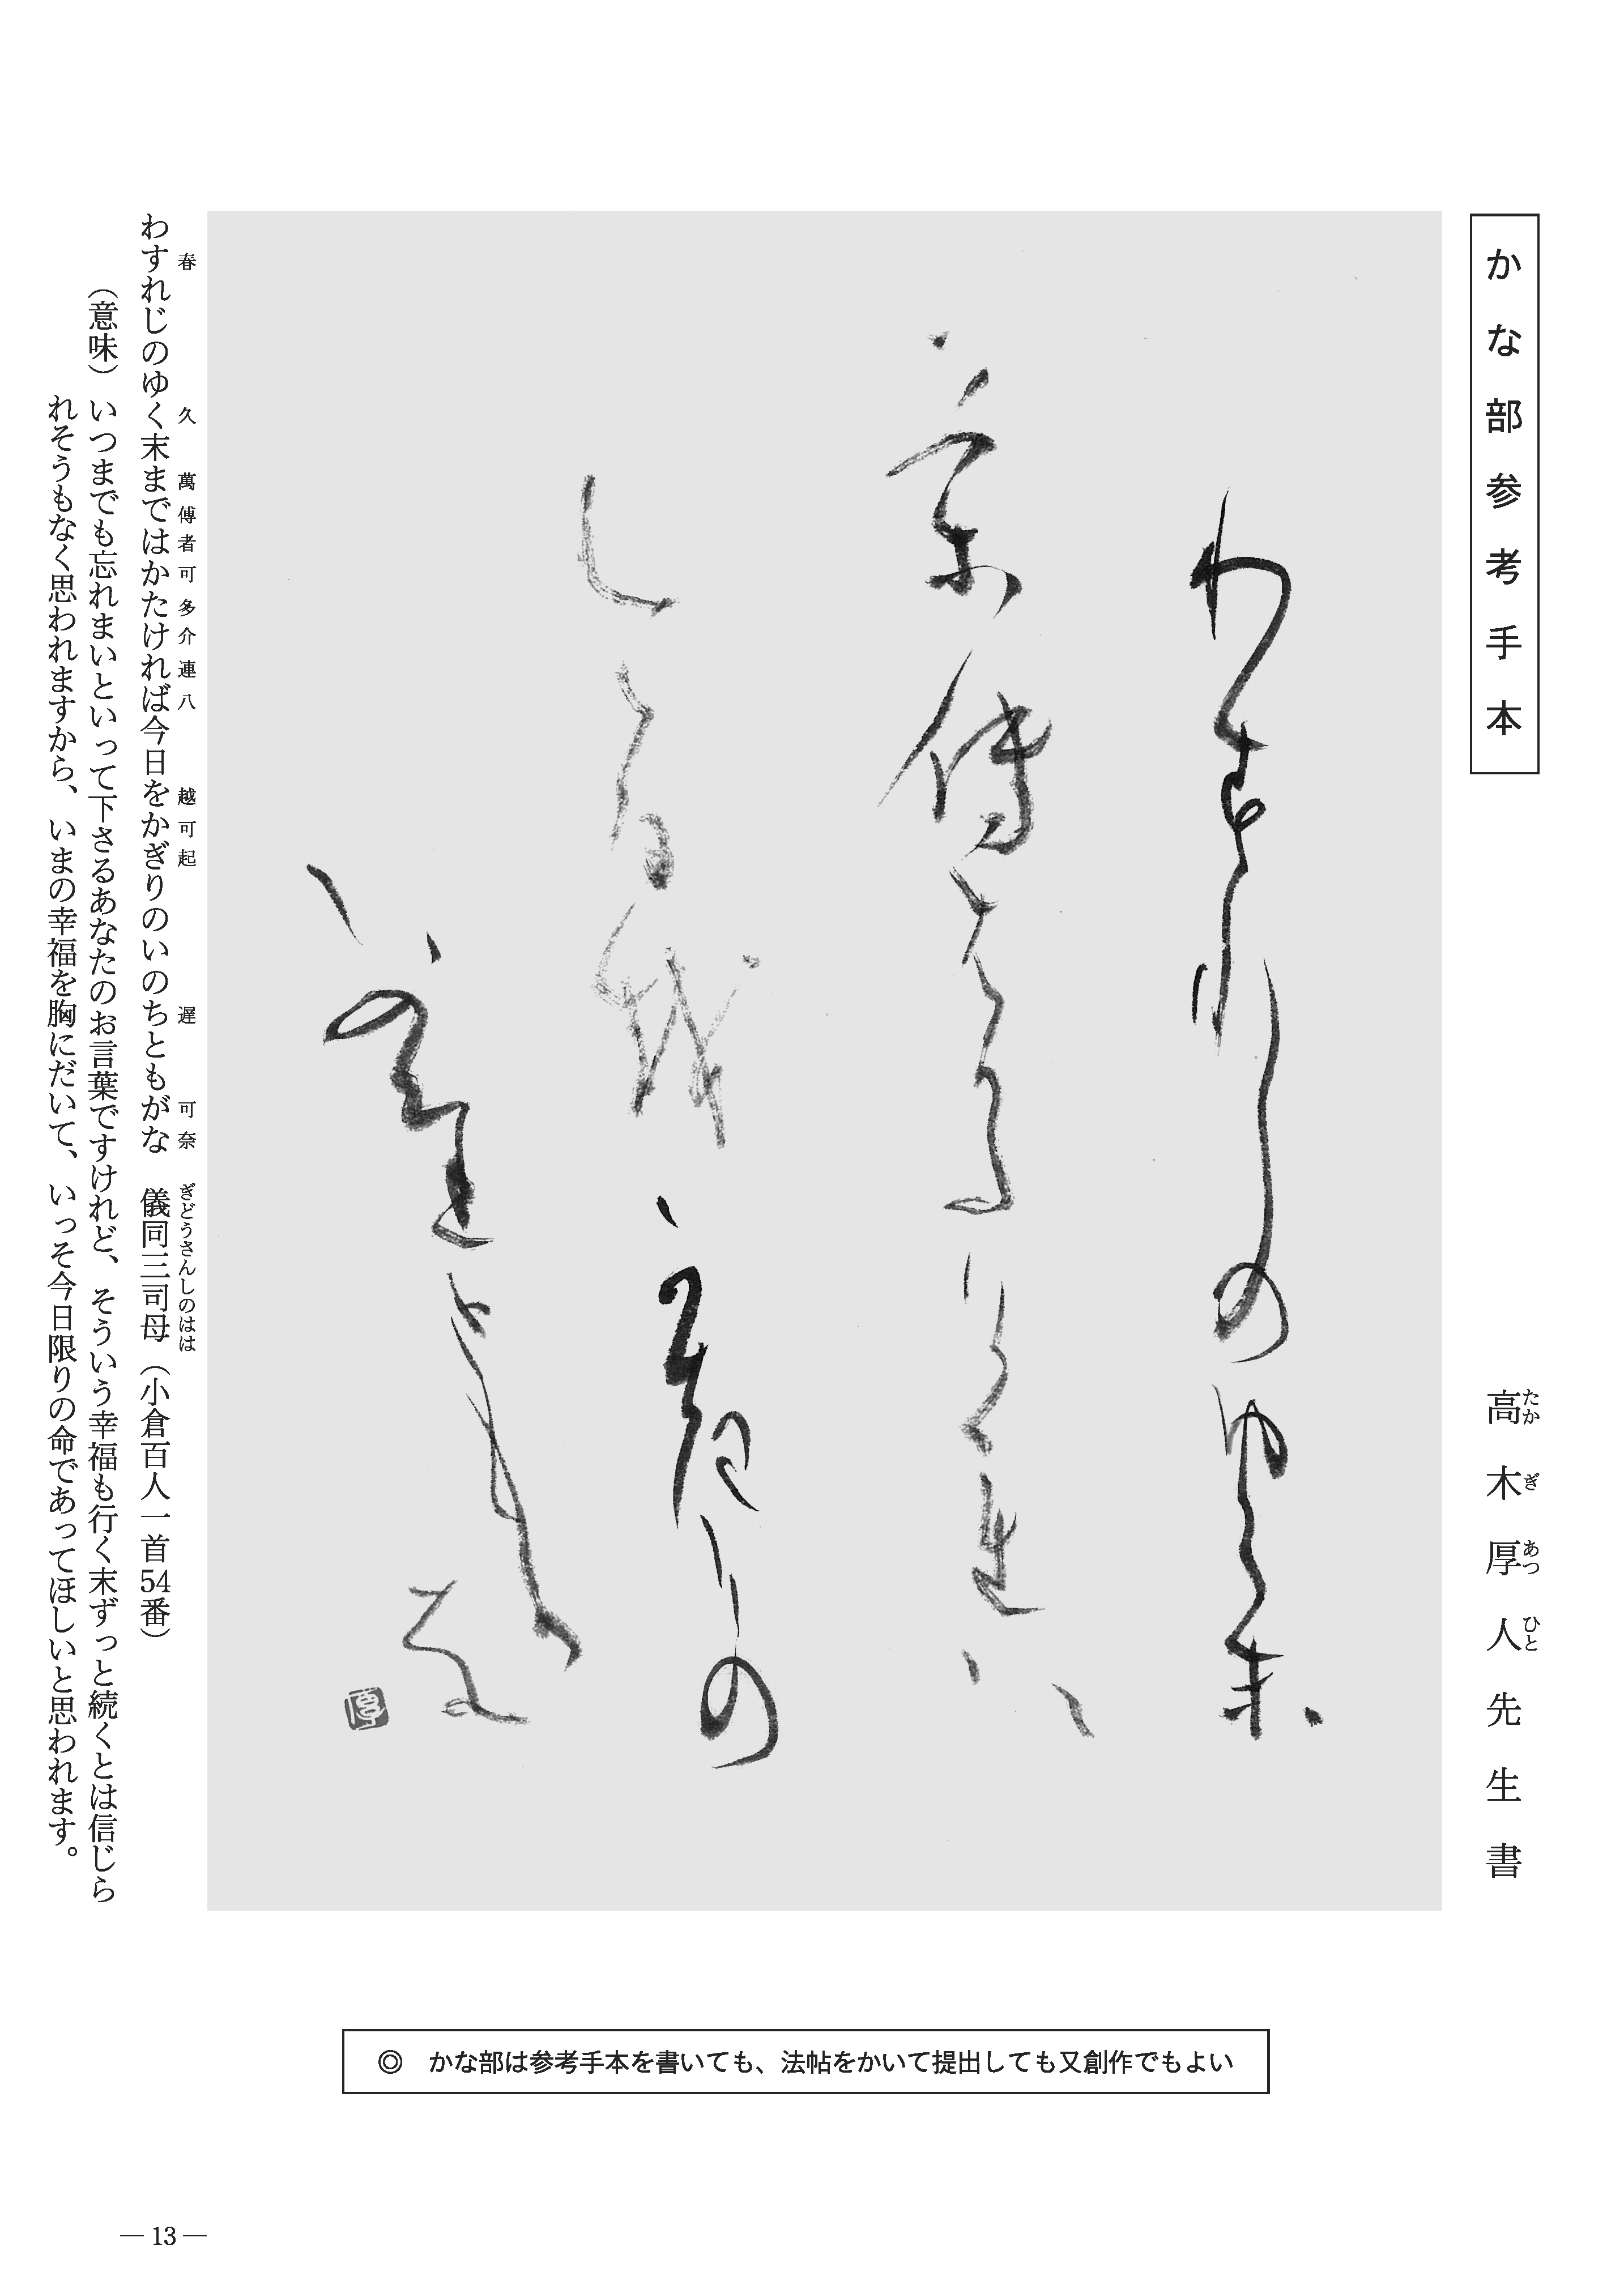 かな部参考手本
高木厚人先生書
たかぎあつひと
わすれしのゆく末
萬傅者可多介連八
今日越可起りの
いのちともかな
春久萬傅者可多介連八越可起遅可奈ぎどうさんしのはは
わすれじのゆく末まではかたければ今日をかぎりのいのちともがな　儀同三司母（小倉百人一首54番）
（意味）いつまでも忘れまいといって下さるあなたのお言葉ですけれど、そういう幸福も行く末ずっと続くとは信じら
れそうもなく思われますから、いまの幸福を胸にだいて、いっそ今日限りの命であってほしいと思われます。
◎　かな部は参考手本を書いても、法帖をかいて提出しても又創作でもよい
― 13 ―